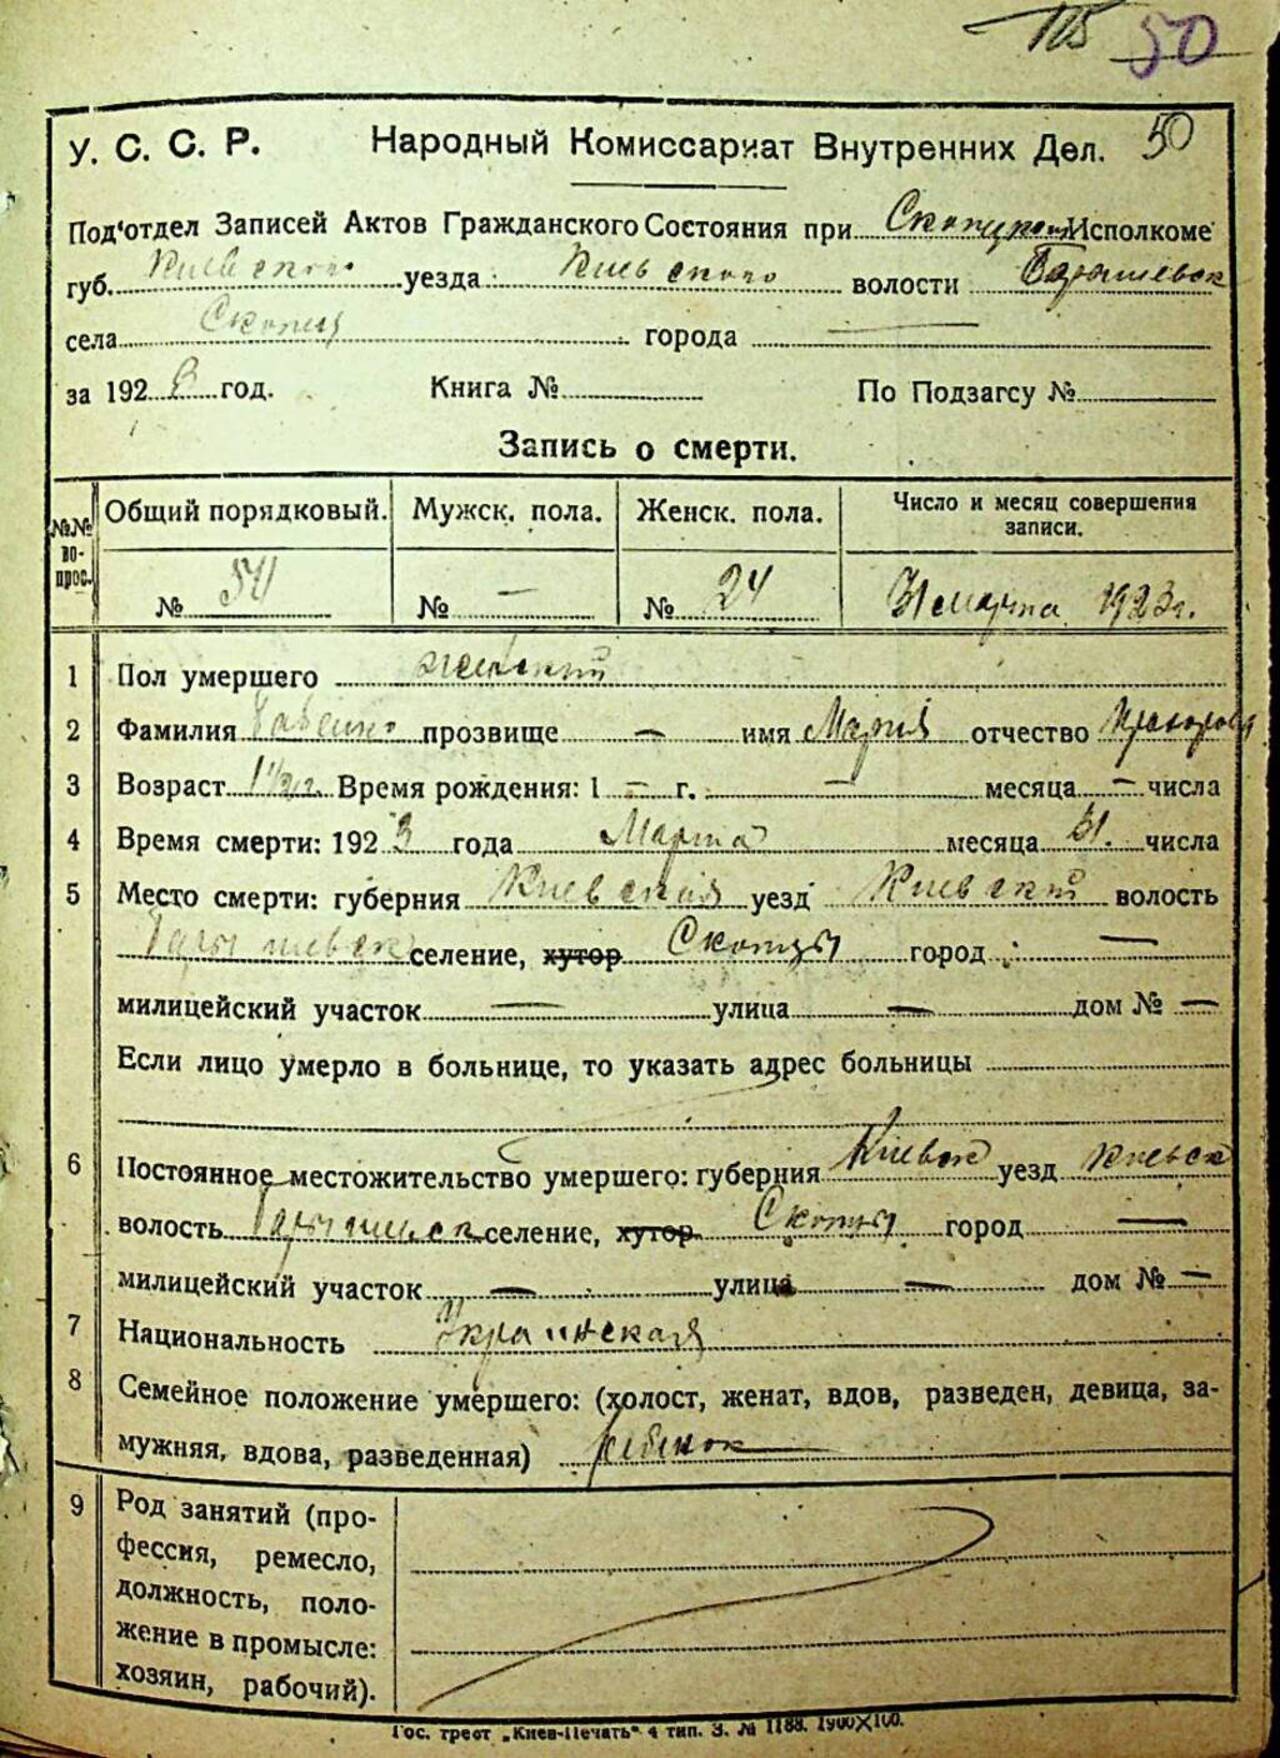 50
У. С. С. Р. Народный Комиссариат Внутренних Дел. 50
Под'отдел Записей Актов Гражданского Состояния при Исполкоме
губ. Киевского уезда Киевского волости
села Скопцы города —
за 192 3 год. Книга № По Подзагсу №
Запись о смерти.
№№ вопрос. Общий порядковый. Мужск. пола. Женск. пола. Число и месяц совершения записи.
№ 50 № — № 24 31 марта 1923 г.
1 Пол умершего женский
2 Фамилия прозвище — имя Мария отчество
3 Возраст 1 1/2 г. Время рождения: 1 — г. — месяца — числа
4 Время смерти: 192 3 года Марта месяца 31. числа
5 Место смерти: губерния Киевская уезд Киевский волость
селение, хутор Скопцы город —
милицейский участок — улица — дом № —
Если лицо умерло в больнице, то указать адрес больницы
6 Постоянное местожительство умершего: губерния Киевск уезд Киевск
волость селение, хутор Скопцы город —
милицейский участок — улица — дом № —
7 Национальность Украинская
8 Семейное положение умершего: (холост, женат, вдов, разведен, девица, за-
мужняя, вдова, разведенная) ребенок
9 Род занятий (про-
фессия, ремесло,
должность, поло-
жение в промысле:
хозяин, рабочий).
Гос. трест „Киев-Печать" 4 тип. З. № 1188. 1900×100.